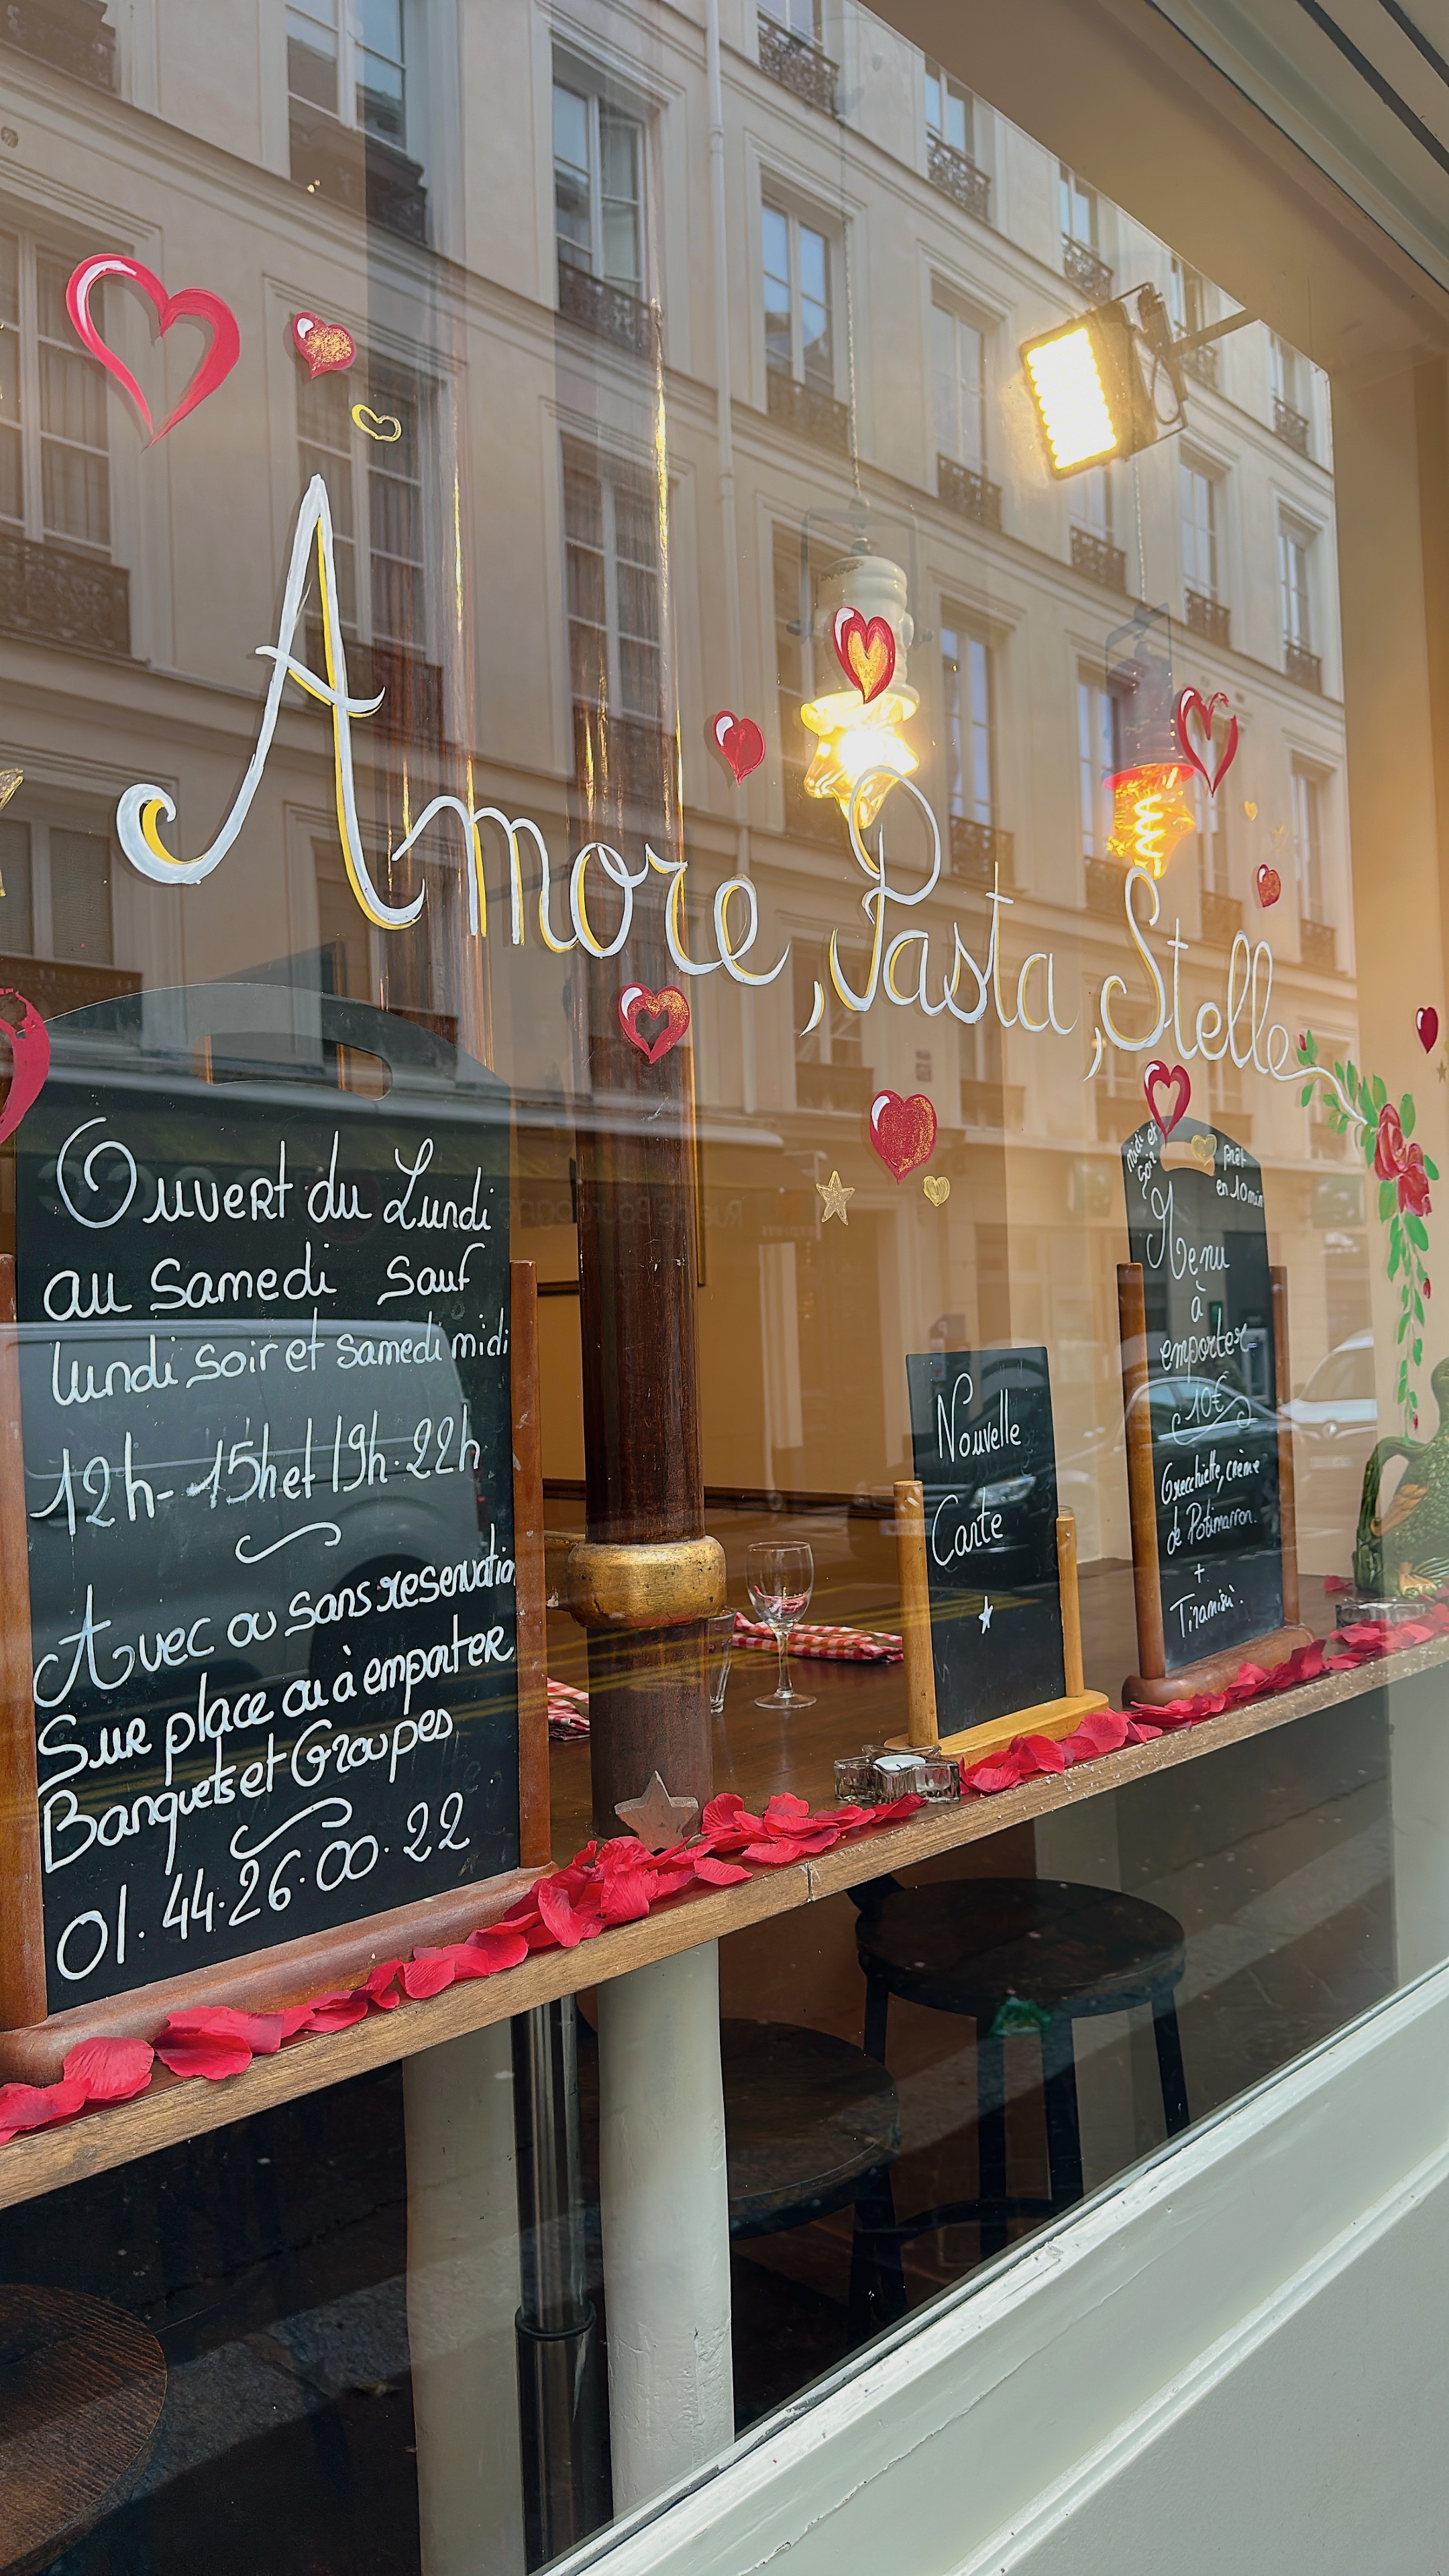 Amore, Pasta, Stelle
Ouvert du Lundi
au Samedi sauf
lundi soir et samedi midi
12h-15h et 19h-22h
Avec ou sans reservation
Sur place ou à emporter
Banquets et Groupes
01.44.26.00.22
Nouvelle
Carte
midi et
soir
prêt
en 10 min
Menu
à
emporter
10€
Orecchiette, crème
de Potimarron.
+
Tiramisù.